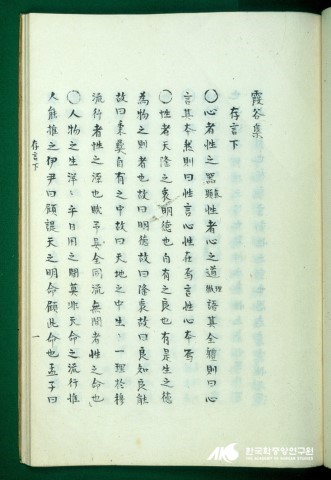 霞谷集
存言下
〇心者性之器顯性者心之道微語其全體則曰心
言其本然則曰性言心性在焉言性心本焉
〇性者天降之衷明德也自有之良也有是生之德
為物之則者也故曰明德故曰降衷故曰良知良能
故曰秉彝自有之中故曰天地之中生一理於穆
流行者性之源也賦予其全同流無間者性之命也
〇人物之生洋洋乎日用之間莫非天命之流行惟
人能推之伊尹曰顧諟天之明命顧此命也孟子曰
存言下
一
한국학중앙연구원
THE ACADEMY OF KOREAN STUDIES